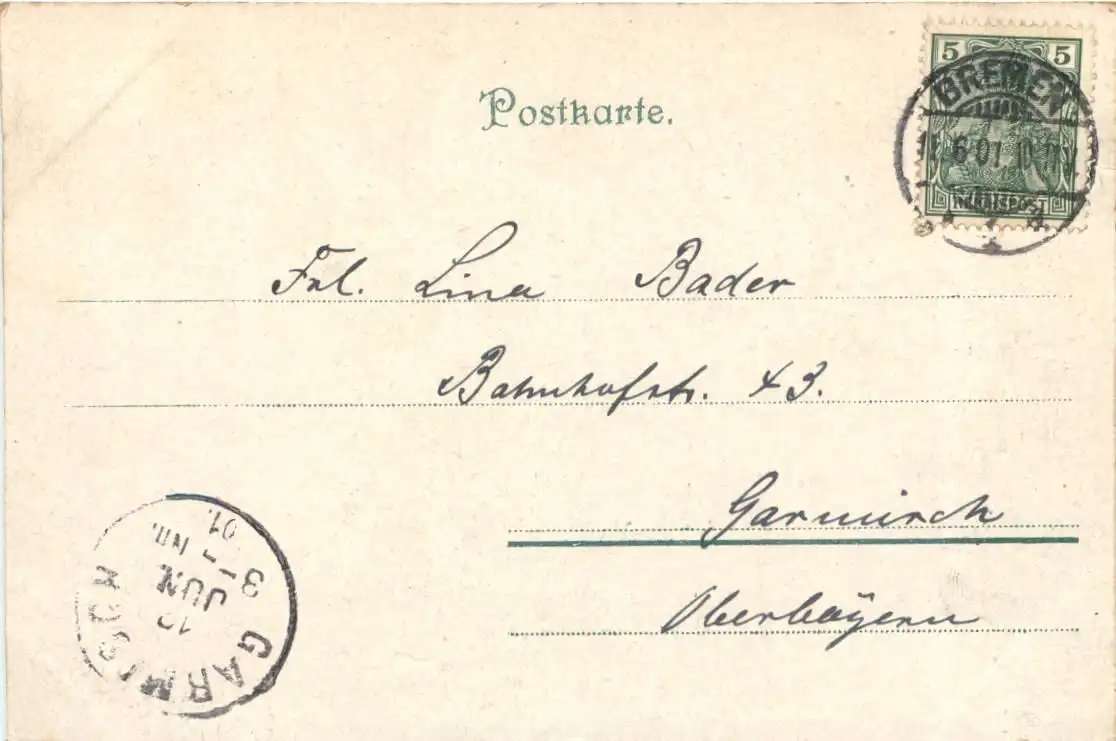 Postkarte.
5 5
BREMEN
6 01 10
REICHSPOST
Frl. Lina Bader
Bahnhofstr. 43.
Garmisch
Oberbayern
GARMISCH
JUN
8
NM.
01.